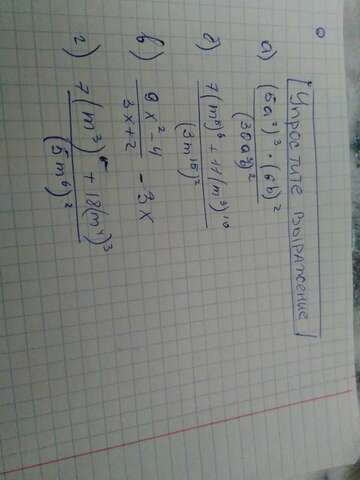 Упростите выражение
а) (5a²)³ · (6b)² / (30a³b)²
б) 7(m⁵)⁶ + 11(m³)¹⁰ / (3m¹⁵)²
в) 9x²-4 / 3x+2 - 3x
г) 7(m³) + 18(m⁴)³ / (5m⁶)²